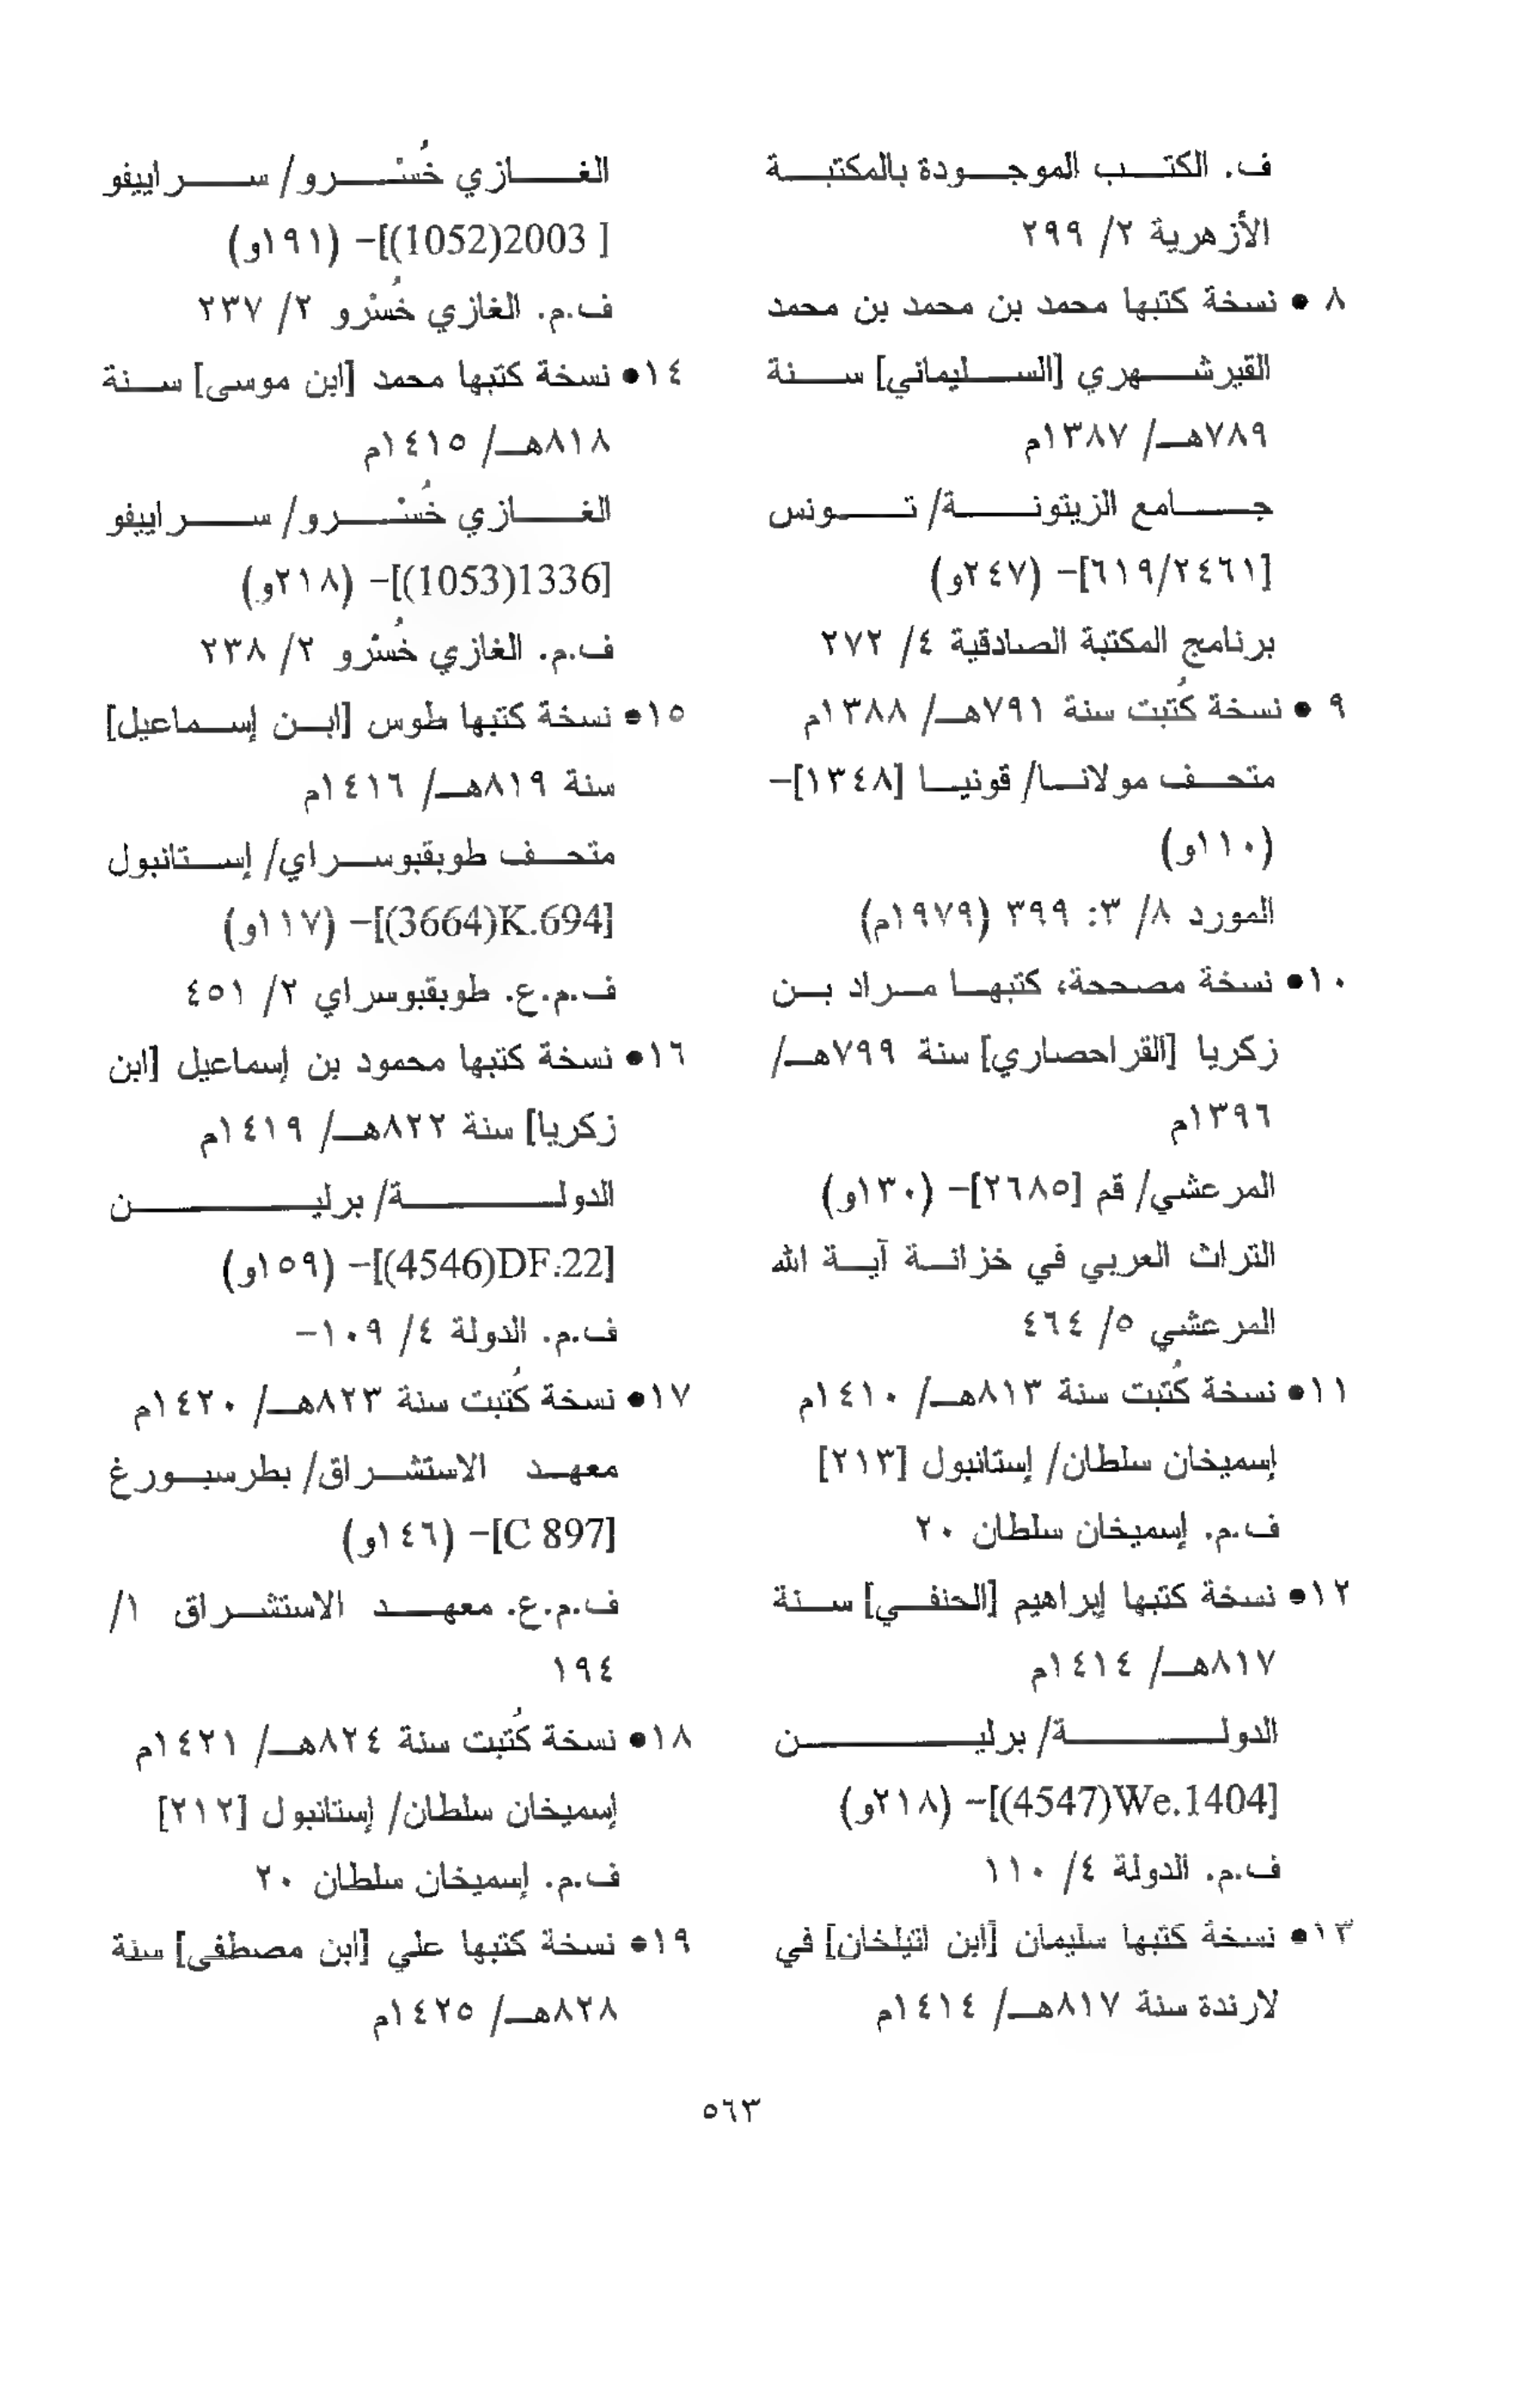 ف. الكتب الموجودة بالمكتبة
الأزهرية ٢/ ٢٩٩
٨ • نسخة كتبها محمد بن محمد بن محمد
القيرشهري [السليماني] سنة
٧٨٩هـ/ ١٣٨٧م
جامع الزيتونة/ تونس
[٦١٩/٢٤٦١]- (٢٤٧و)
برنامج المكتبة الصادقية ٤/ ٢٧٢
٩ • نسخة كُتبت سنة ٧٩١هـ/ ١٣٨٨م
متحف مولانا/ قونيا [١٣٤٨]-
(١١٠و)
المورد ٨/ ٣: ٣٩٩ (١٩٧٩م)
١٠• نسخة مصححة، كتبها مراد بن
زكريا [القراحصاري] سنة ٧٩٩هـ/
١٣٩٦م
المرعشي/ قم [٢٦٨٥]- (١٣٠و)
التراث العربي في خزانة آية الله
المرعشي ٥/ ٤٦٤
١١• نسخة كُتبت سنة ٨١٣هـ/ ١٤١٠م
إسميخان سلطان/ إستانبول [٢١٣]
ف.م. إسميخان سلطان ٢٠
١٢• نسخة كتبها إبراهيم [الحنفي] سنة
٨١٧هـ/ ١٤١٤م
الدولة/ برلين
[4547)We.1404)]- (٢١٨و)
ف.م. الدولة ٤/ ١١٠
١٣• نسخة كتبها سليمان [ابن اتيلخان] في
لارندة سنة ٨١٧هـ/ ١٤١٤م
الغازي خُسْرو/ سراييفو
[ 1052)2003)]- (١٩١و)
ف.م. الغازي خُسْرو ٢/ ٢٣٧
١٤• نسخة كتبها محمد [ابن موسى] سنة
٨١٨هـ/ ١٤١٥م
الغازي خُسْرو/ سراييفو
[1053)1336)]- (٢١٨و)
ف.م. الغازي خُسْرو ٢/ ٢٣٨
١٥• نسخة كتبها طوس [ابن إسماعيل]
سنة ٨١٩هـ/ ١٤١٦م
متحف طوبقبوسراي/ إستانبول
[3664)K.694)]- (١١٧و)
ف.م.ع. طوبقبوسراي ٢/ ٤٥١
١٦• نسخة كتبها محمود بن إسماعيل [ابن
زكريا] سنة ٨٢٢هـ/ ١٤١٩م
الدولة/ برلين
[4546)DF.22)]- (١٥٩و)
ف.م. الدولة ٤/ ١٠٩-
١٧• نسخة كُتبت سنة ٨٢٣هـ/ ١٤٢٠م
معهد الاستشراق/ بطرسبورغ
[C 897]- (١٤٦و)
ف.م.ع. معهد الاستشراق ١/
١٩٤
١٨• نسخة كُتبت سنة ٨٢٤هـ/ ١٤٢١م
إسميخان سلطان/ إستانبول [٢١٢]
ف.م. إسميخان سلطان ٢٠
١٩• نسخة كتبها علي [ابن مصطفى] سنة
٨٢٨هـ/ ١٤٢٥م
٥٦٣